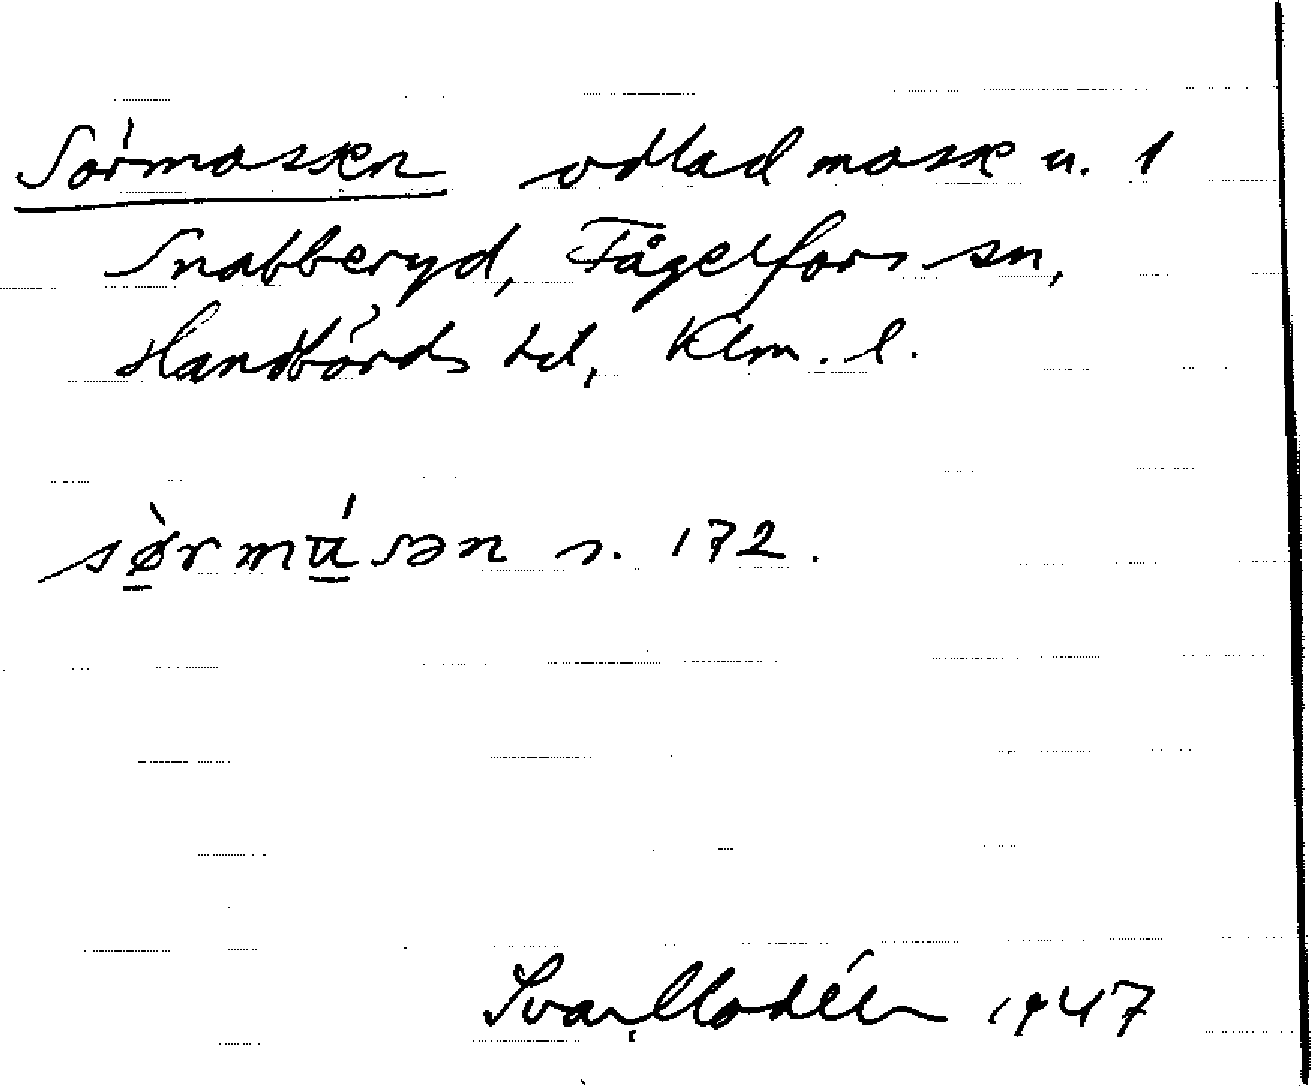 Sörmossen odlad mosse u. 1
Snabberyd, Fågelfors sn,
Handbörds hd, Klm. l.
sø̀rmúsən s. 172.
Ivar Modéer 1947